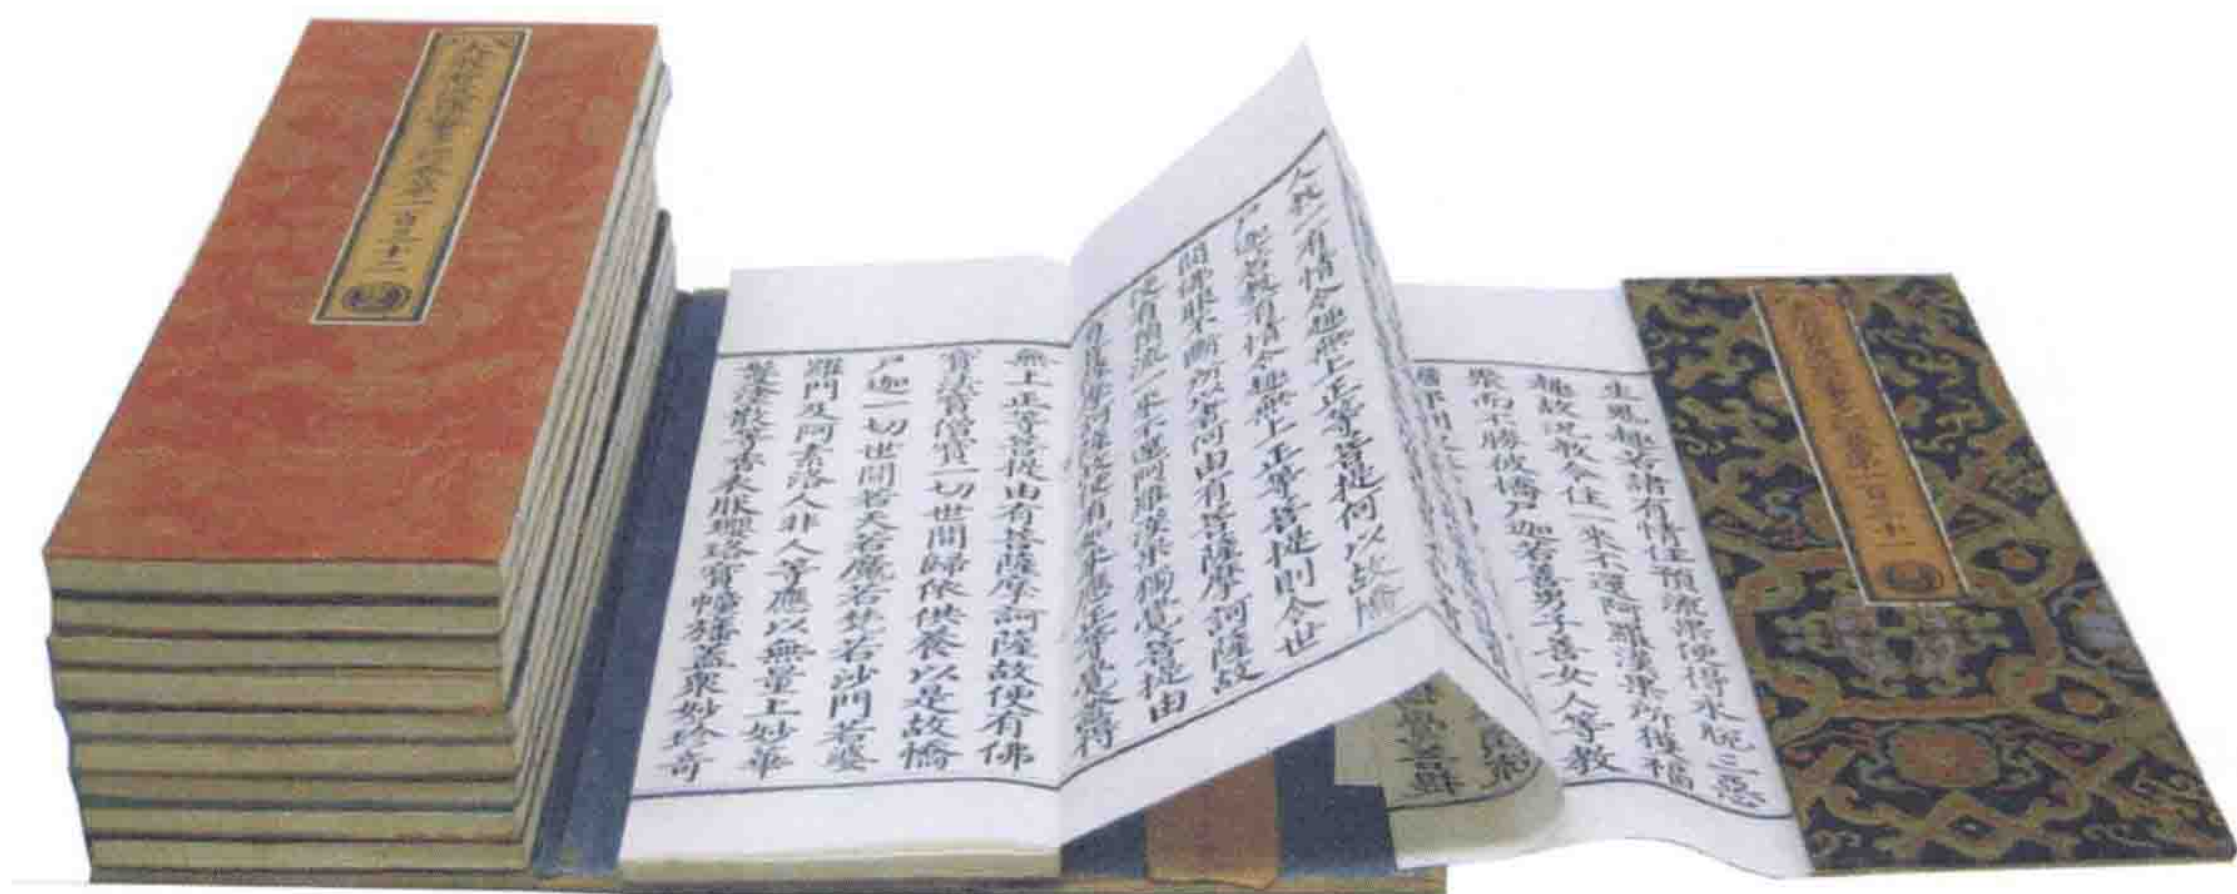 生惡趣若諸有情住預流果便得永脫三惡
趣故況教令住一來不還阿羅漢果所獲福
聚而不勝彼憍尸迦若善男子善女人等教
人教一有情令趣無上正等菩提何以故憍
尸迦若教有情令趣無上正等菩提則令世
間佛眼不斷所以者何由有菩薩摩訶薩故
便有預流一來不還阿羅漢果獨覺菩提由
有菩薩摩訶薩故便有如來應正等覺證得
無上正等菩提由有菩薩摩訶薩故便有佛
寶法寶僧寶一切世間歸依供養以是故憍
尸迦一切世間若天若魔若梵若沙門若婆
羅門及阿素洛人非人等應以無量上妙華
鬘塗散等香衣服瓔珞寶幢幡蓋衆妙珍奇